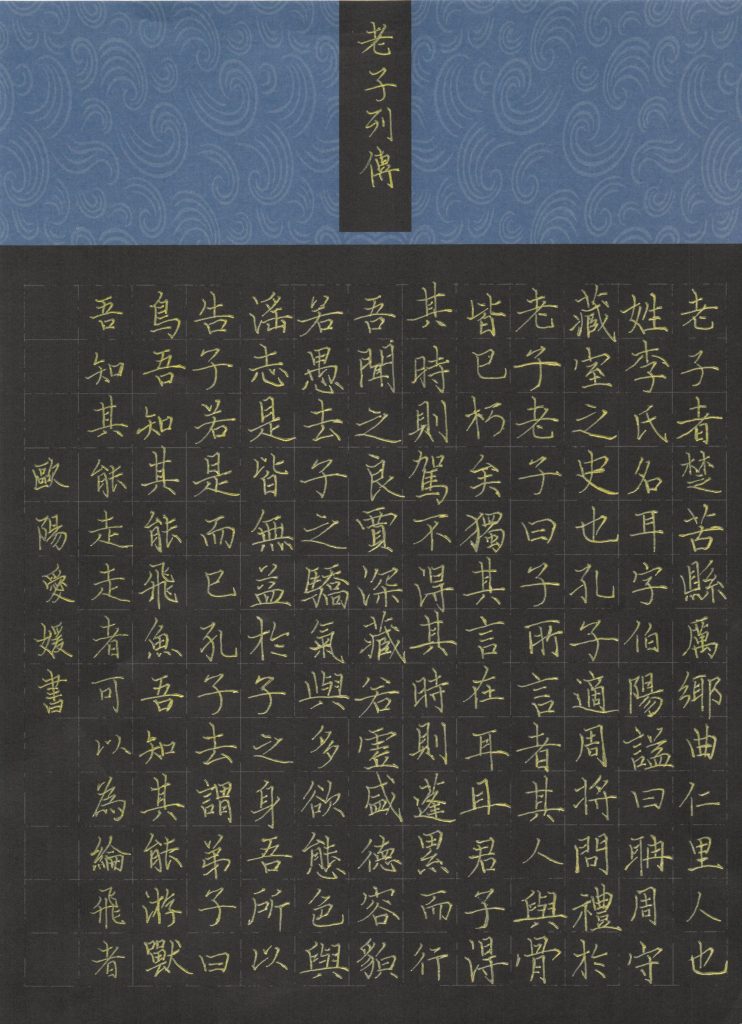 老子列傳
老子者楚苦縣厲鄉曲仁里人也
姓李氏名耳字伯陽謚曰聃周守
藏室之史也孔子適周將問禮於
老子老子曰子所言者其人與骨
皆已朽矣獨其言在耳且君子得
其時則駕不得其時則蓬累而行
吾聞之良賈深藏若虛盛德容貌
若愚去子之驕氣與多欲態色與
滛志是皆無益於子之身吾所以
告子若是而已孔子去謂弟子曰
鳥吾知其能飛魚吾知其能游獸
吾知其能走走者可以為綸飛者
歐陽愛媛書